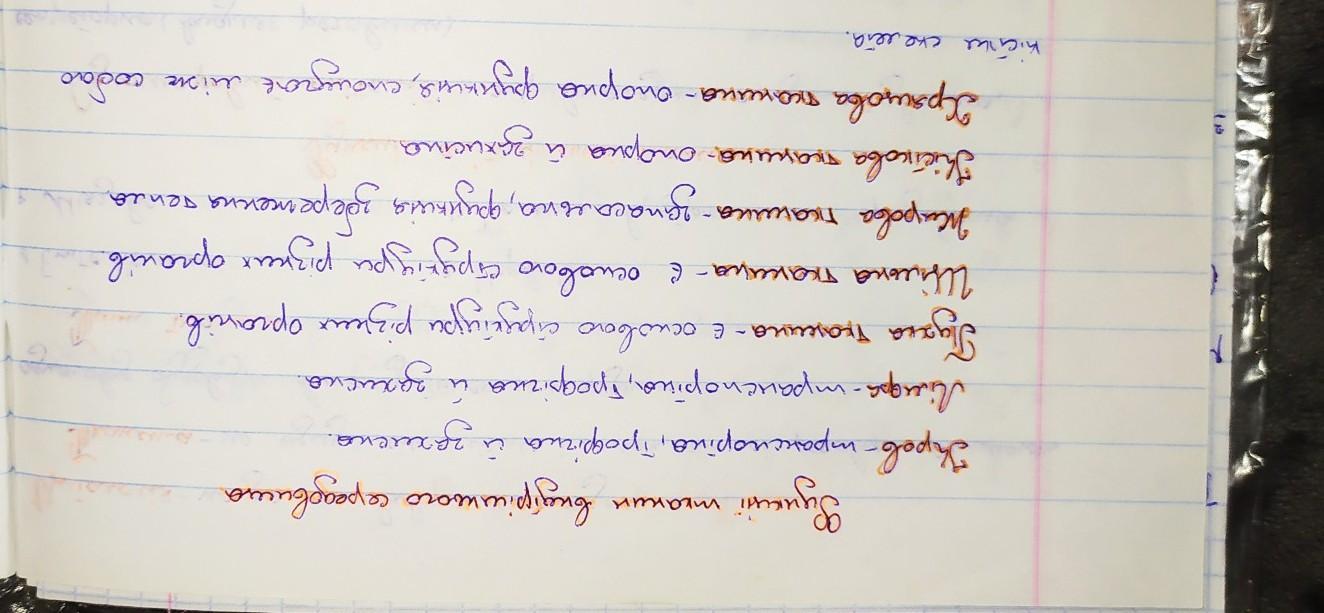 Функції тканин внутрішнього середовища
Кров - транспортна, трофічна й захисна.
Лімфа - транспортна, трофічна й захисна.
Пухка тканина - є основою структури різних органів.
Щільна тканина - є основою структури різних органів.
Жирова тканина - запасаюча, функція збереження тепла
Кісткова тканина - опорна й захисна
Хрящова тканина - опорна функція, сполучає між собою
кістки скелета.